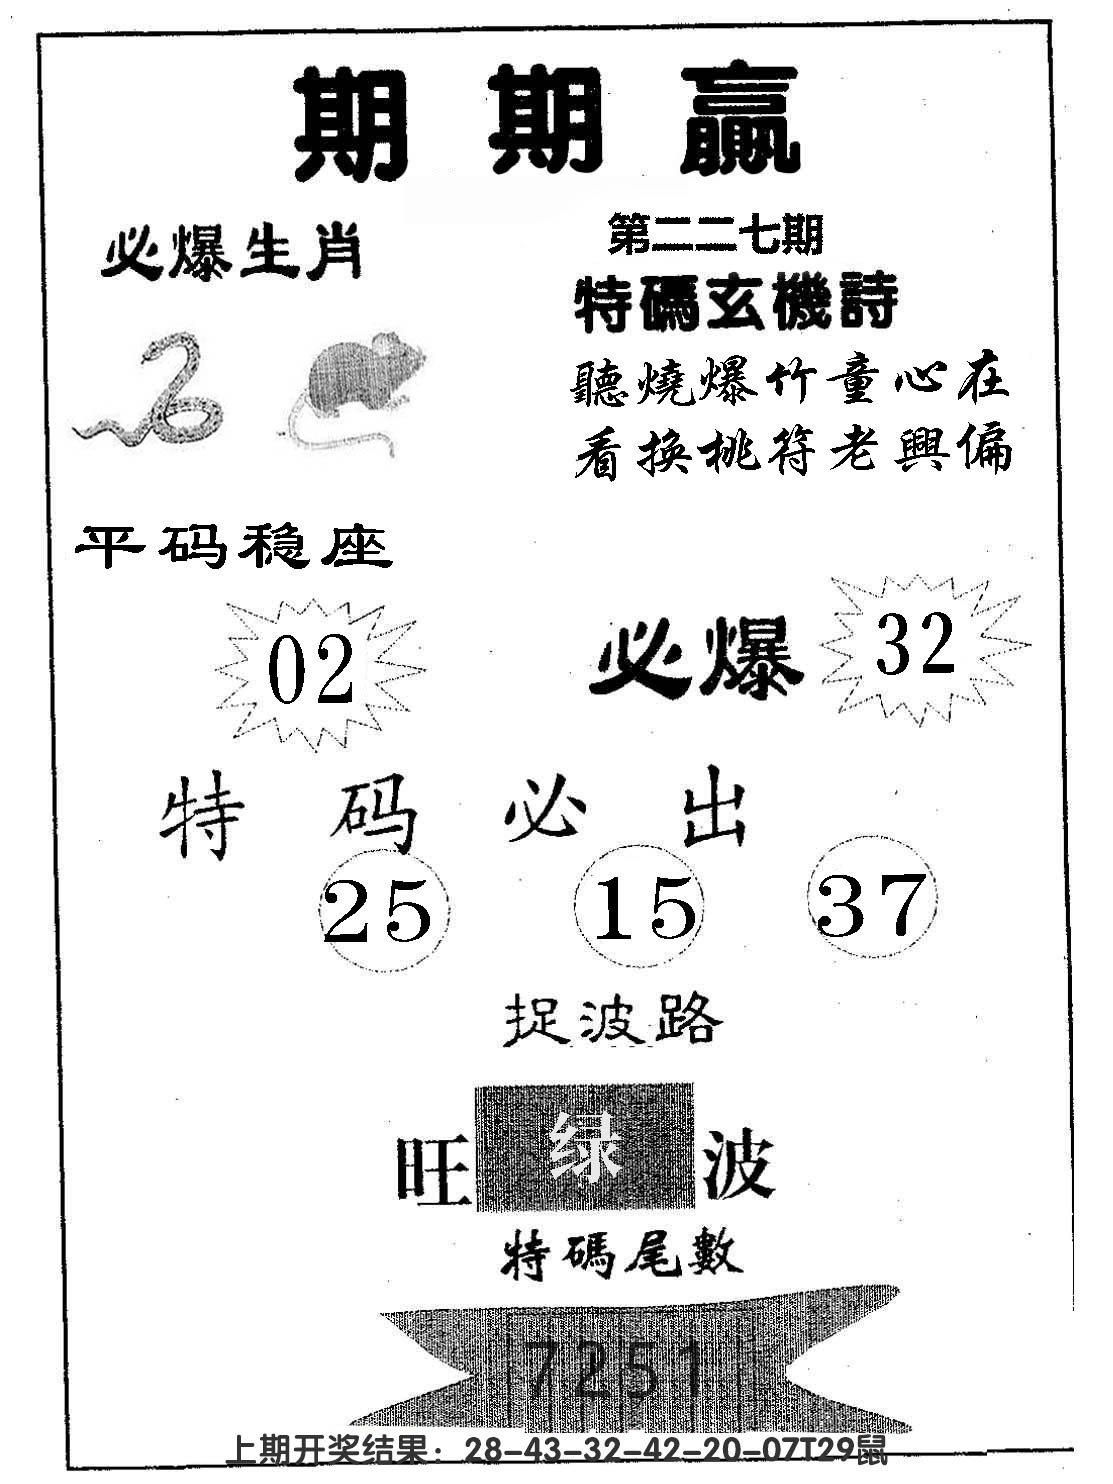 期期贏
必爆生肖
第二二七期
特碼玄機詩
聽燒爆竹童心在
看換桃符老興偏
平码稳座
02
必爆 32
特码必出
25 15 37
捉波路
旺 绿 波
特碼尾數
7251
上期开奖结果：28-43-32-42-20-07T29鼠